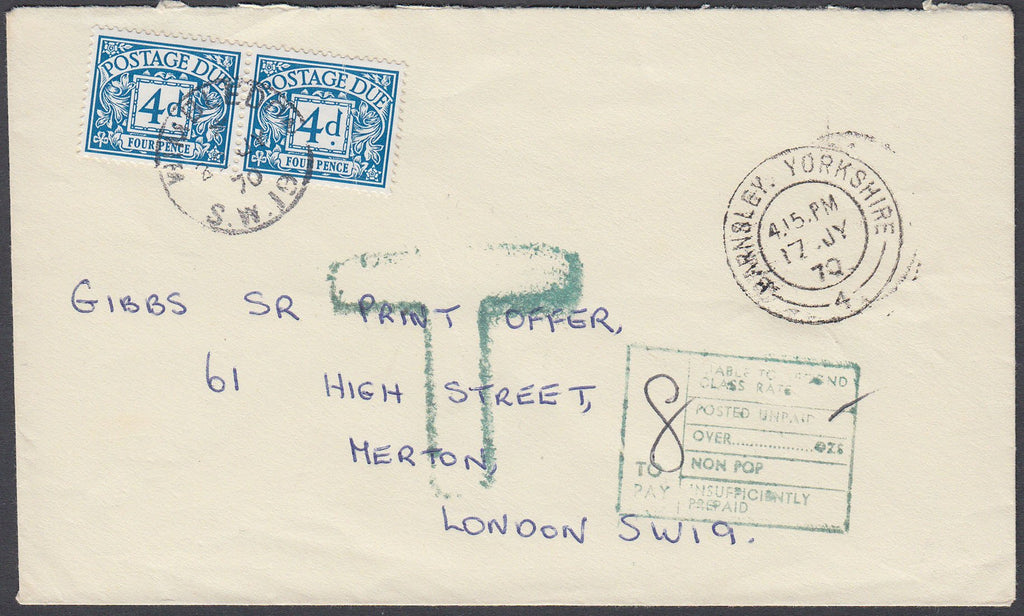 POSTAGE DUE
4d
FOUR PENCE
POSTAGE DUE
4d.
FOUR PENCE
S.W.19
70
BARNSLEY. YORKSHIRE
4.15.PM
17 JY
70
4
T
GIBBS SR PRINT OFFER,
61 HIGH STREET,
MERTON
LONDON SW19.
8
TO
PAY
LIABLE TO SECOND
CLASS RATE
POSTED UNPAID
OVER.................OZS
NON POP
INSUFFICIENTLY
PREPAID